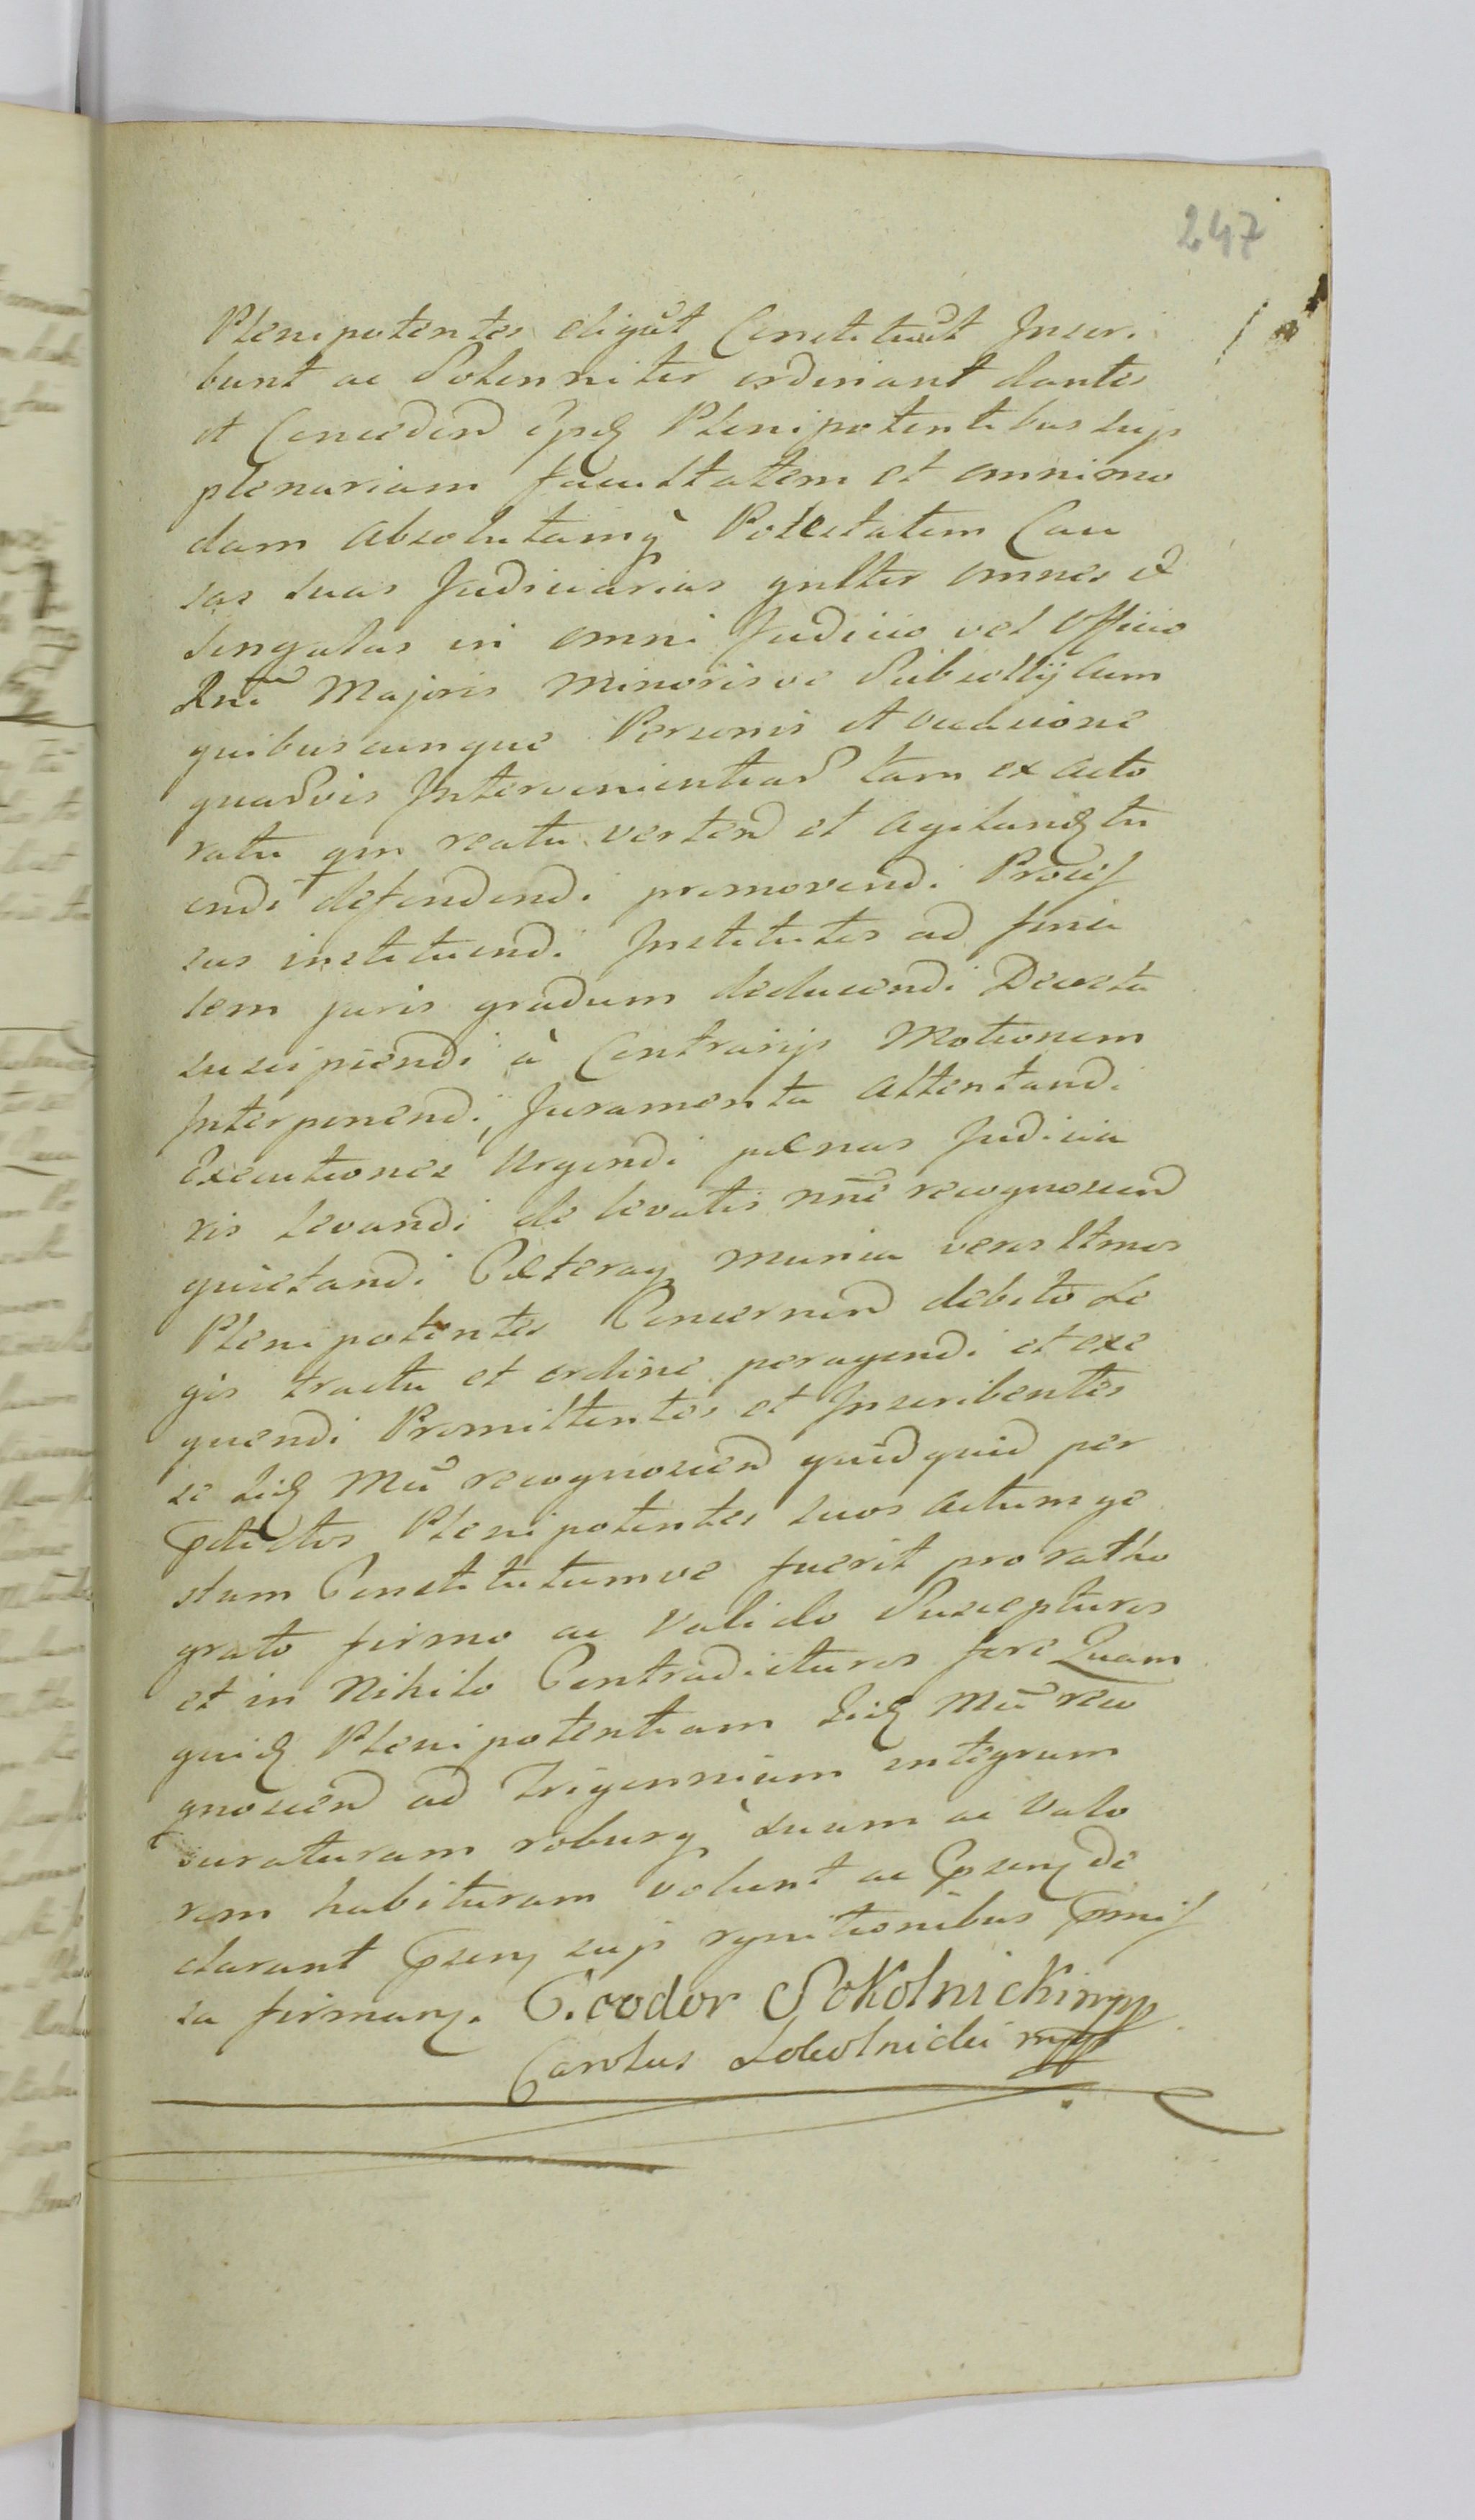 247
Plenipotentes eligũt Constituũt Inscri
bunt ac Solenniter ordinant dantes
et Conceden ipsq Plenipotentibus suis
plenariam facultatem et omnimo
dam absolutamq Potestatem Cau
sas suas Judiciarias gnlter omnes et
singulas in omni Judicio vel Officio
Rni Majoris Minorisve Subsellij Cum
quibuscunque Personis et occasione
quadvis Intervenientiad tam ex acto
ratu qm reatu verten et agitandq tu
endi defendendi promovendi Proces
sus instituendi Institutos ad fina
lem juris gradum deducendi Decreta
suscipiendi à Contrarijs Motionem
Interponendi, Juramenta attentandi
Executiones Urgendi pænas Judicia
ris levandi de levatis nñe recognoscend
quietandi Cæteraq munia veros ltmos
Plenipotentes Concernen debito Le
gis tractu et ordine peragendi et exe
quendi Promittentes et Inscribentes
se hicq Mũ recognoscen quidquid per
Pdictos Plenipotentes suos actum ge
stum Constitutumve fuerit pro ratho
grato firmo ac Valido Suscepturos
et in Nihilo Contradicturos fore Quam
quidq Plenipotentiam hicq Mũ reco
gnoscen ad Trigennium integrum
duraturam roburq suum ac Valo
rem habituram volunt ac Psenq de
clarant Psenq suis rgnitionibus Pmis
sa firmanq. Teodor Sokolnicki mpp
Carolus Sokolnicki mpp